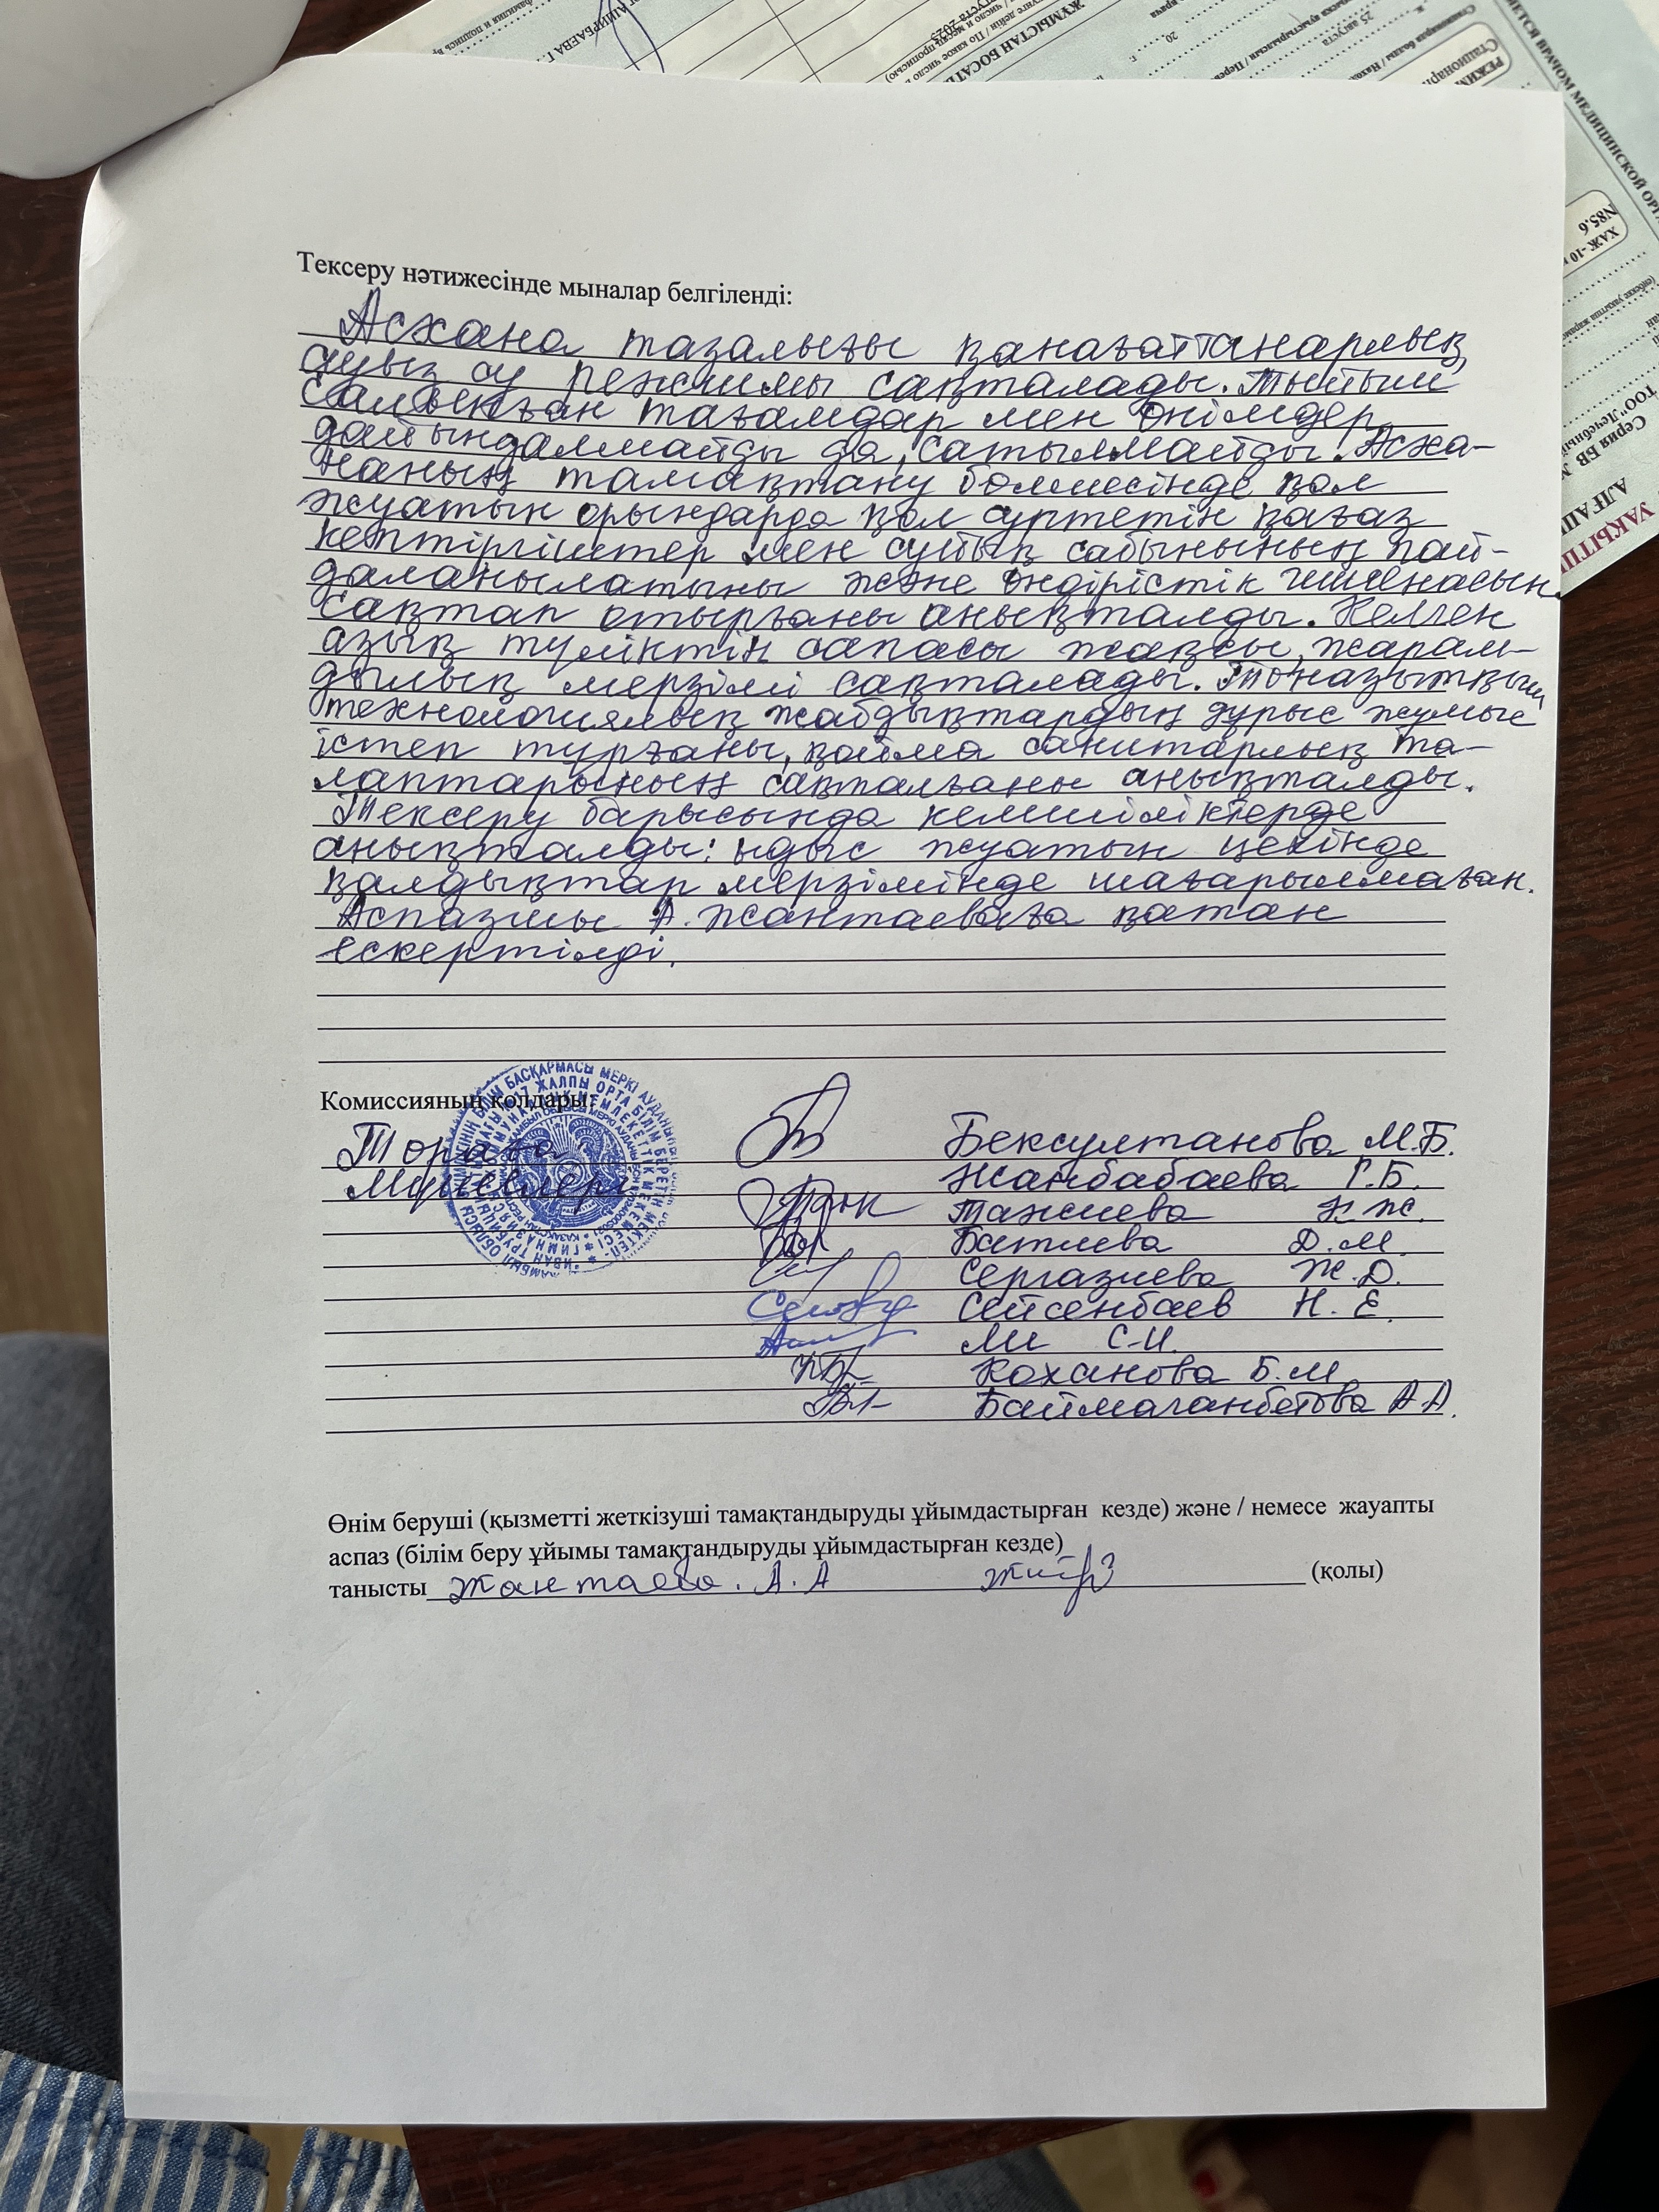 Тексеру нәтижесінде мыналар белгіленді:
Асхана тазалығы қанағаттанарлық,
ауыз су режимы сақталады. Тыйым
салынған тағамдар мен өнімдер
дайындалмайды да, сатылмайды. Асха-
наның тамақтану бөлмесінде қол
жуатын орындарда қол сүртетін қағаз
кептіргіштер мен сұйық сабынының пай-
даланылатыны және өндірістік гигиенасын
сақтап отырғаны анықталды. Келген
азық түліктің сапасы жақсы, жарам-
дылық мерзімі сақталады. Тоназытқыш,
технологиялық жабдықтардың дұрыс жұмыс
істеп тұрғаны, қойма санитарлық та-
лаптарының сақталғаны анықталды.
Тексеру барысында кемшіліктерде
анықталды: ыдыс жуатын цехінде
қалдықтар мерзімінде шағарылмаған.
Аспазшы А. Жантаеваға қатан
ескертілді.
Комиссияның қолдары:
Төраға Бексултанова М.Б.
Мүшелері Жанбабаева Г.Б.
Тажиева К.Ж.
Батлева Д.М.
Сергазиева Ж.Д.
Сейсенбаев Н.Е.
Ли С-И.
Коханова Б.М
Баймаганбетова А А.
Өнім беруші (қызметті жеткізуші тамақтандыруды ұйымдастырған кезде) және / немесе жауапты
аспаз (білім беру ұйымы тамақтандыруды ұйымдастырған кезде)
танысты Жантаева. А.А (қолы)